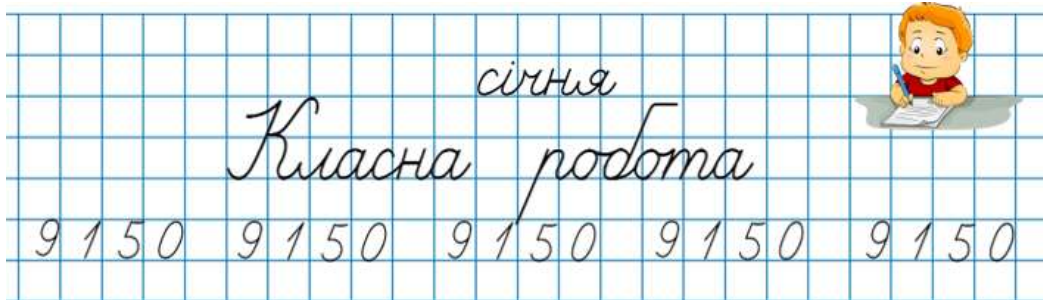 січня
Класна робота
9 1 5 0 9 1 5 0 9 1 5 0 9 1 5 0 9 1 5 0